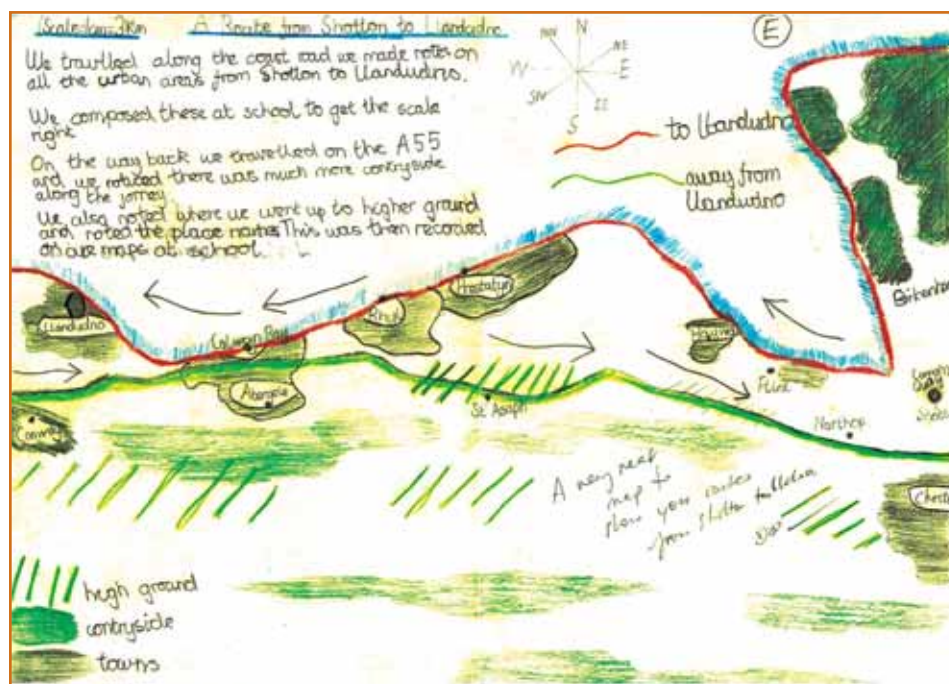 Scale 1cm = 3Km
A Route from Shotton to Llandudno
We travlled along the coast road we made notes on
all the urban areas from Shotton to Llandudno.
We composed these at school to get the scale
right
On the way back we travelled on the A55
and we noticed there was much more contryside
along the jorney
We also noted where we went up to higher ground
and noted the place names. This was then recorded
on our maps at school.
N
NE
E
SE
S
SW
W
NW
E
to Llandudno
away from
Llandudno
Llandudno
Colwyn Bay
Rhyl
Prestatyn
Abergele
St Asaph
Flint
Northop
A very neat
map to
show your routes
from Shotton to Llandudno
high ground
contryside
towns